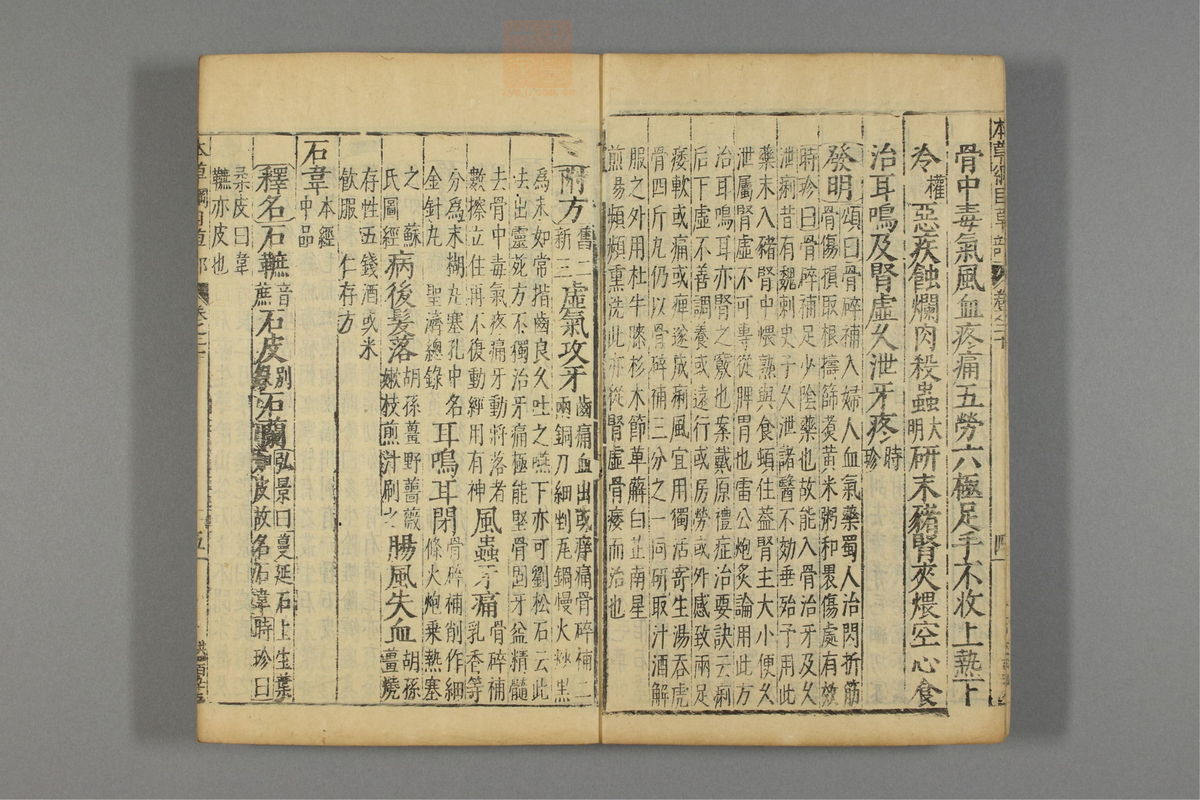 本草綱目草部 卷之二十 四
骨中毒氣風血疼痛五勞六極足手不收上熱下
冷權惡疾蝕爛肉殺蟲大明研末豬腎夾煨空心食
治耳鳴及腎虛久泄牙疼時珍
發明頌曰骨碎補入婦人血氣藥蜀人治閃折筋
骨傷損取根擣篩煑黃米粥和裹傷處有效
時珍曰骨碎補足少陰藥也故能入骨治牙及久
泄痢昔有魏刺史子久泄諸醫不効垂殆予用此
藥末入豬腎中煨熟與食頓住葢腎主大小便久
泄屬腎虛不可專從脾胃也雷公炮炙論用此方
治耳鳴耳亦腎之竅也案戴原禮證治要訣云痢
后下虛不善調養或遠行或房勞或外感致兩足
痿軟或痛或痺遂成痢風宜用獨活寄生湯吞虎
骨四斤丸仍以骨碎補三分之一同研取汁酒解
服之外用杜牛膝杉木節萆薢白芷南星
煎湯頻頻熏洗此亦從腎虛骨痿而治也
附方舊二新三虛氣攻牙齒痛血出或痒痛骨碎補二
兩銅刀細剉瓦鍋慢火炒黑
為末如常揩齒良久吐之嚥下亦可劉松石云此
法出靈苑方不獨治牙痛極能堅骨固牙益精髓
去骨中毒氣疼痛牙動將落者
數擦立住再不復動經用有神風蟲牙痛骨碎補
乳香等
分爲末糊丸塞孔中名
金針丸聖濟總錄耳鳴耳閉骨碎補削作細
條火炮乗熱塞
之蘇
氏圖經病後髮落胡孫薑野薔薇
嫩枝煎汁刷之腸風失血胡孫
薑燒
存性五錢酒或米
飲服仁存方
石韋本經
中品
釋名石䩾音蔗石皮別錄石蘭弘景曰蔓延石上生葉
如皮故名石韋時珍曰
柔皮曰韋
䩾亦皮也
本草綱目草部 卷之二十 五